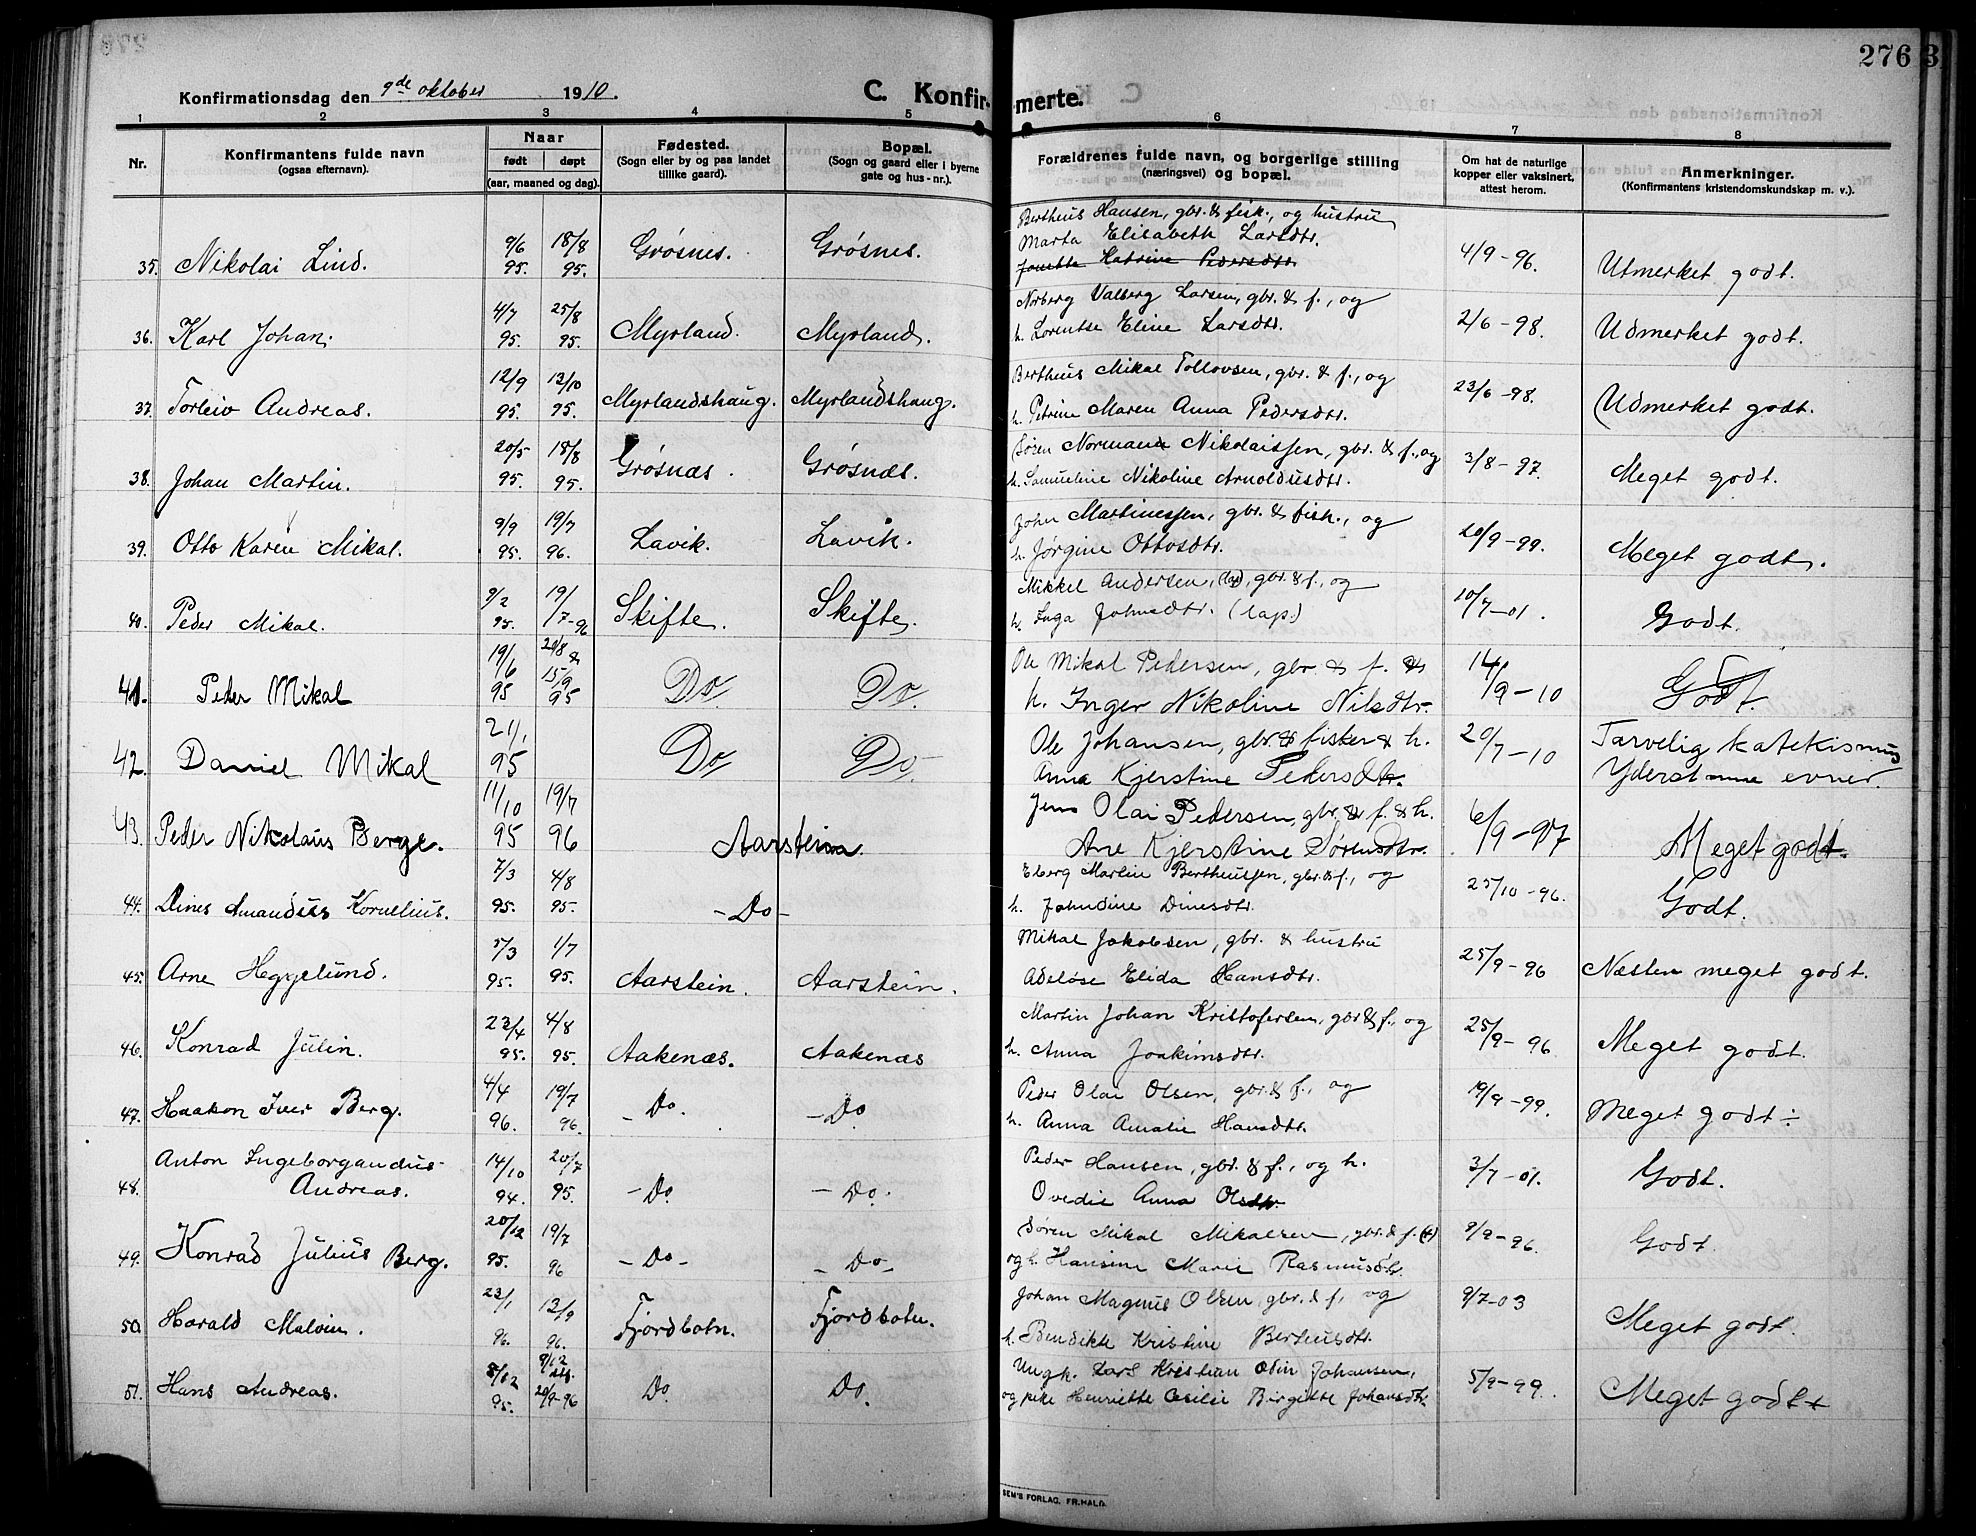 276
Konfirmationsdag den 9de oktober 1910.
C. Konfir-merte.
1 2 3 4 5 6 7 8
Nr.
Konfirmantens fulde navn
(ogsaa efternavn).
Naar
født døpt
(aar, maaned og dag).
Fødested.
(Sogn eller by og paa landet
tillike gaard).
Bopæl.
(Sogn og gaard eller i byerne
gate og hus-nr.).
Forældrenes fulde navn, og borgerlige stilling
(næringsvei) og bopæl.
Om hat de naturlige
kopper eller vaksinert,
attest herom.
Anmerkninger.
(Konfirmantens kristendomskundskap m. v.).
Bertheus Hansen, gbr. & fisk., og hustru
35. Nikolai Lind. 9/6 95. 18/8 95. Grøsnes. Grøsnes. Marta Elisabeth Larsdtr. 4/9-96. Utmerket godt.
Jonetta Katrine Pedersdtr.
Norberg Valberg Larsen, gbr. & f., og
36. Karl Johan. 4/7 95. 25/8 95. Myrland. Myrland. h. Lorentse Eline Larsdtr. 2/6-98. Udmerket godt.
Bertheus Mikal Tollovsen, gbr. & f., og
37. Torleiv Andreas. 12/9 95. 13/10 95. Myrlandshaug. Myrlandshaug. h. Petrine Maren Anna Pedersdtr. 23/6-98. Udmerket godt.
Søren Normann Nikolaissen, gbr. & f., og
38. Johan Martin. 20/5 95. 18/8 95. Grøsnæs. Grøsnæs. h. Samueline Nikoline Arnoldusdtr. 3/8-97. Meget godt.
John Martinessen, gbr. & fisk., og
39. Otto Karen Mikal. 9/9 95. 19/7 96. Lavik. Lavik. h. Jørgine Ottosdtr. 20/9-99. Meget godt.
Mikkel Andersen, (lap), gbr. & f., og
40. Peder Mikal. 9/2 95. 19/7-96 Skifte. Skifte. h. Inga Johnsdtr. (lap.) 10/7-01. Godt.
Ole Mikal Pedersen, gbr & f. &
41. Peder Mikal 19/6 95 20/8 & 15/9 95 Do. Do. h. Inger Nikoline Nilsdtr. 14/9-10 Godt.
Ole Johansen, gbr. & fisker & h.
42. Daniel Mikal 21/1 95 Do Do. Anna Kjerstine Pedersdtr. 20/7-10 Tarvelig katekismus
Yderst evner.
Jens Olai Pedersen, gbr. & f. & h.
43. Peder Nikolaus Berge. 11/10 95 19/7 96 Aarstein. Ane Kjerstine Sørensdtr. 6/9-97 Meget godt.
Eberg Martin Bertheussen, gbr. & f., og
44. Dines Amandus Kornelius. 7/3 95. 4/8 95. -Do- h. Johndine Dinesdtr. 25/10-96. Godt.
Mikal Jakobsen, gbr. & hustru
45. Arne Heggelund. 5/3 95. 1/7 95. Aarstein. Aarstein. Adeløse Elida Hansdtr. 25/9-96 Næsten meget godt.
Martin Johan Kristofersen, gbr & f., og
46. Konrad Julin. 23/4 95. 4/8 95. Aakenæs. Aakenæs h. Anna Joakimsdtr. 25/9-96 Meget godt.
Peder Olai Olsen, gbr. & f., og
47. Haakon Iver Berg. 4/4 96. 19/7 96. - Do. - Do h. Anna Amalie Hansdtr. 19/9-99. Meget godt ÷
Anton Ingeborgandus- Peder Hansen, gbr. & f., og h.
48. Andreas. 14/10 94. 20/7 95. - Do. - Do. Ovedie Anna Olsdtr. 3/7-01. Godt.
Søren Mikal Mikalsen, gbr. & f. (+)
49. Konrad Julius Berg. 20/12 95. 19/7 96 - Do - - Do - og h. Hansine Marie Rasmusdtr. 9/9-96. Godt.
Johan Magnus Olsen, gbr. & f., og
50. Harald Malvin. 23/1 96. 13/9 96. Fjordbotn. Fjordbotn. h. Bendikte Kristine Bertheusdtr. 9/7-03 Meget godt.
Ungk. Lars Kristian Odin Johansen,
51. Hans Andreas. 8/12 95. 9/12 20/9-96 Do. Do. og pike Henriette Cecilie Birgitte Johansdtr. 5/9-99. Meget godt +
SEM'S FORLAG, FR.HALD.